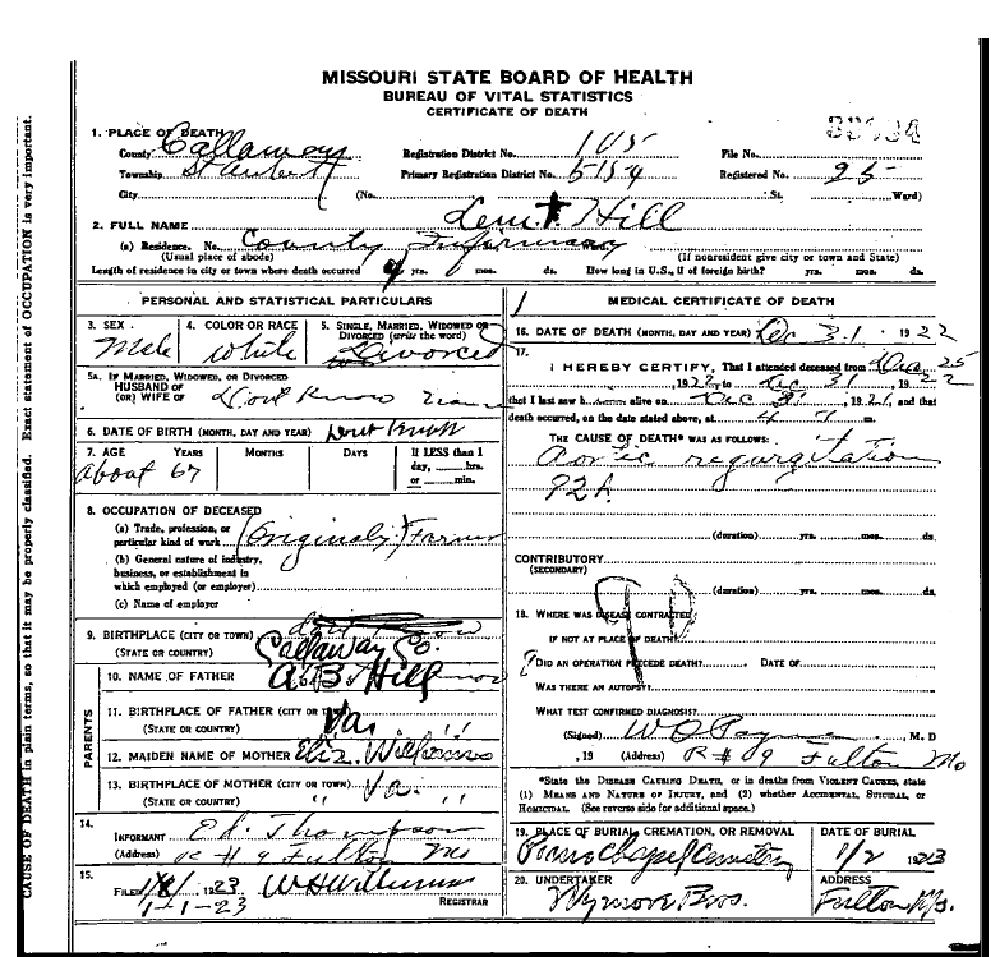 MISSOURI STATE BOARD OF HEALTH
BUREAU OF VITAL STATISTICS
CERTIFICATE OF DEATH
1. PLACE OF DEATH
County Callaway Registration District No. 105 File No.
Township St Aubert Primary Registration District No. 5154 Registered No. 25
City (No. St. Ward)
2. FULL NAME Lem. T. Hill
(a) Residence. No. County Infirmary
(Usual place of abode) (If nonresident give city or town and State)
Length of residence in city or town where death occurred yrs. mos. ds. How long in U.S., if of foreign birth? yrs. mos. ds.
PERSONAL AND STATISTICAL PARTICULARS
3. SEX 4. COLOR OR RACE 5. SINGLE, MARRIED, WIDOWED OR
DIVORCED (write the word)
Male White Divorced
5A. IF MARRIED, WIDOWED, OR DIVORCED
HUSBAND OF
(OR) WIFE OF Dont Know
6. DATE OF BIRTH (MONTH, DAY AND YEAR) Dont Know
7. AGE YEARS MONTHS DAYS If LESS than 1
day, hrs.
or min.
About 67
8. OCCUPATION OF DECEASED
(a) Trade, profession, or
particular kind of work (Originaly) Farmer
(b) General nature of industry,
business, or establishment in
which employed (or employer)
(c) Name of employer
9. BIRTHPLACE (CITY OR TOWN)
(STATE OR COUNTRY) Callaway Co.
PARENTS
10. NAME OF FATHER A. B. Hill
11. BIRTHPLACE OF FATHER (CITY OR TOWN) Va. ,,
(STATE OR COUNTRY)
12. MAIDEN NAME OF MOTHER Eliz. Williams
13. BIRTHPLACE OF MOTHER (CITY OR TOWN) Va. ,,
(STATE OR COUNTRY) ,,
14.
INFORMANT Ed. Thompson
(Address) R # 9 Fulton Mo
15.
FILED 1/8/ 1923 W H Williams
1-1-23 REGISTRAR
MEDICAL CERTIFICATE OF DEATH
16. DATE OF DEATH (MONTH, DAY AND YEAR) Dec 31 1922
17.
I HEREBY CERTIFY, That I attended deceased from Dec 25
, 1922, to Dec 31, 1922
that I last saw h alive on Dec 31, 1921, and that
death occurred, on the date stated above, at 4 m.
THE CAUSE OF DEATH* WAS AS FOLLOWS:
Aortic regurgitation
92A
(duration) yrs. mos. ds.
CONTRIBUTORY
(SECONDARY)
(duration) yrs. mos. ds.
18. WHERE WAS DISEASE CONTRACTED
IF NOT AT PLACE OF DEATH?
DID AN OPERATION PRECEDE DEATH? DATE OF
WAS THERE AN AUTOPSY?
WHAT TEST CONFIRMED DIAGNOSIS?
(Signed) , M. D
, 19 (Address) R # 9 Fulton Mo
*State the DISEASE CAUSING DEATH, or in deaths from VIOLENT CAUSES, state
(1) MEANS AND NATURE OF INJURY, and (2) whether ACCIDENTAL, SUICIDAL, or
HOMICIDAL. (See reverse side for additional space.)
19. PLACE OF BURIAL, CREMATION, OR REMOVAL DATE OF BURIAL
Chapel Cemetery 1/2 1923
20. UNDERTAKER ADDRESS
Bros. Fulton Mo.
CAUSE OF DEATH in plain terms, so that it may be properly classified. Exact statement of OCCUPATION is very important.